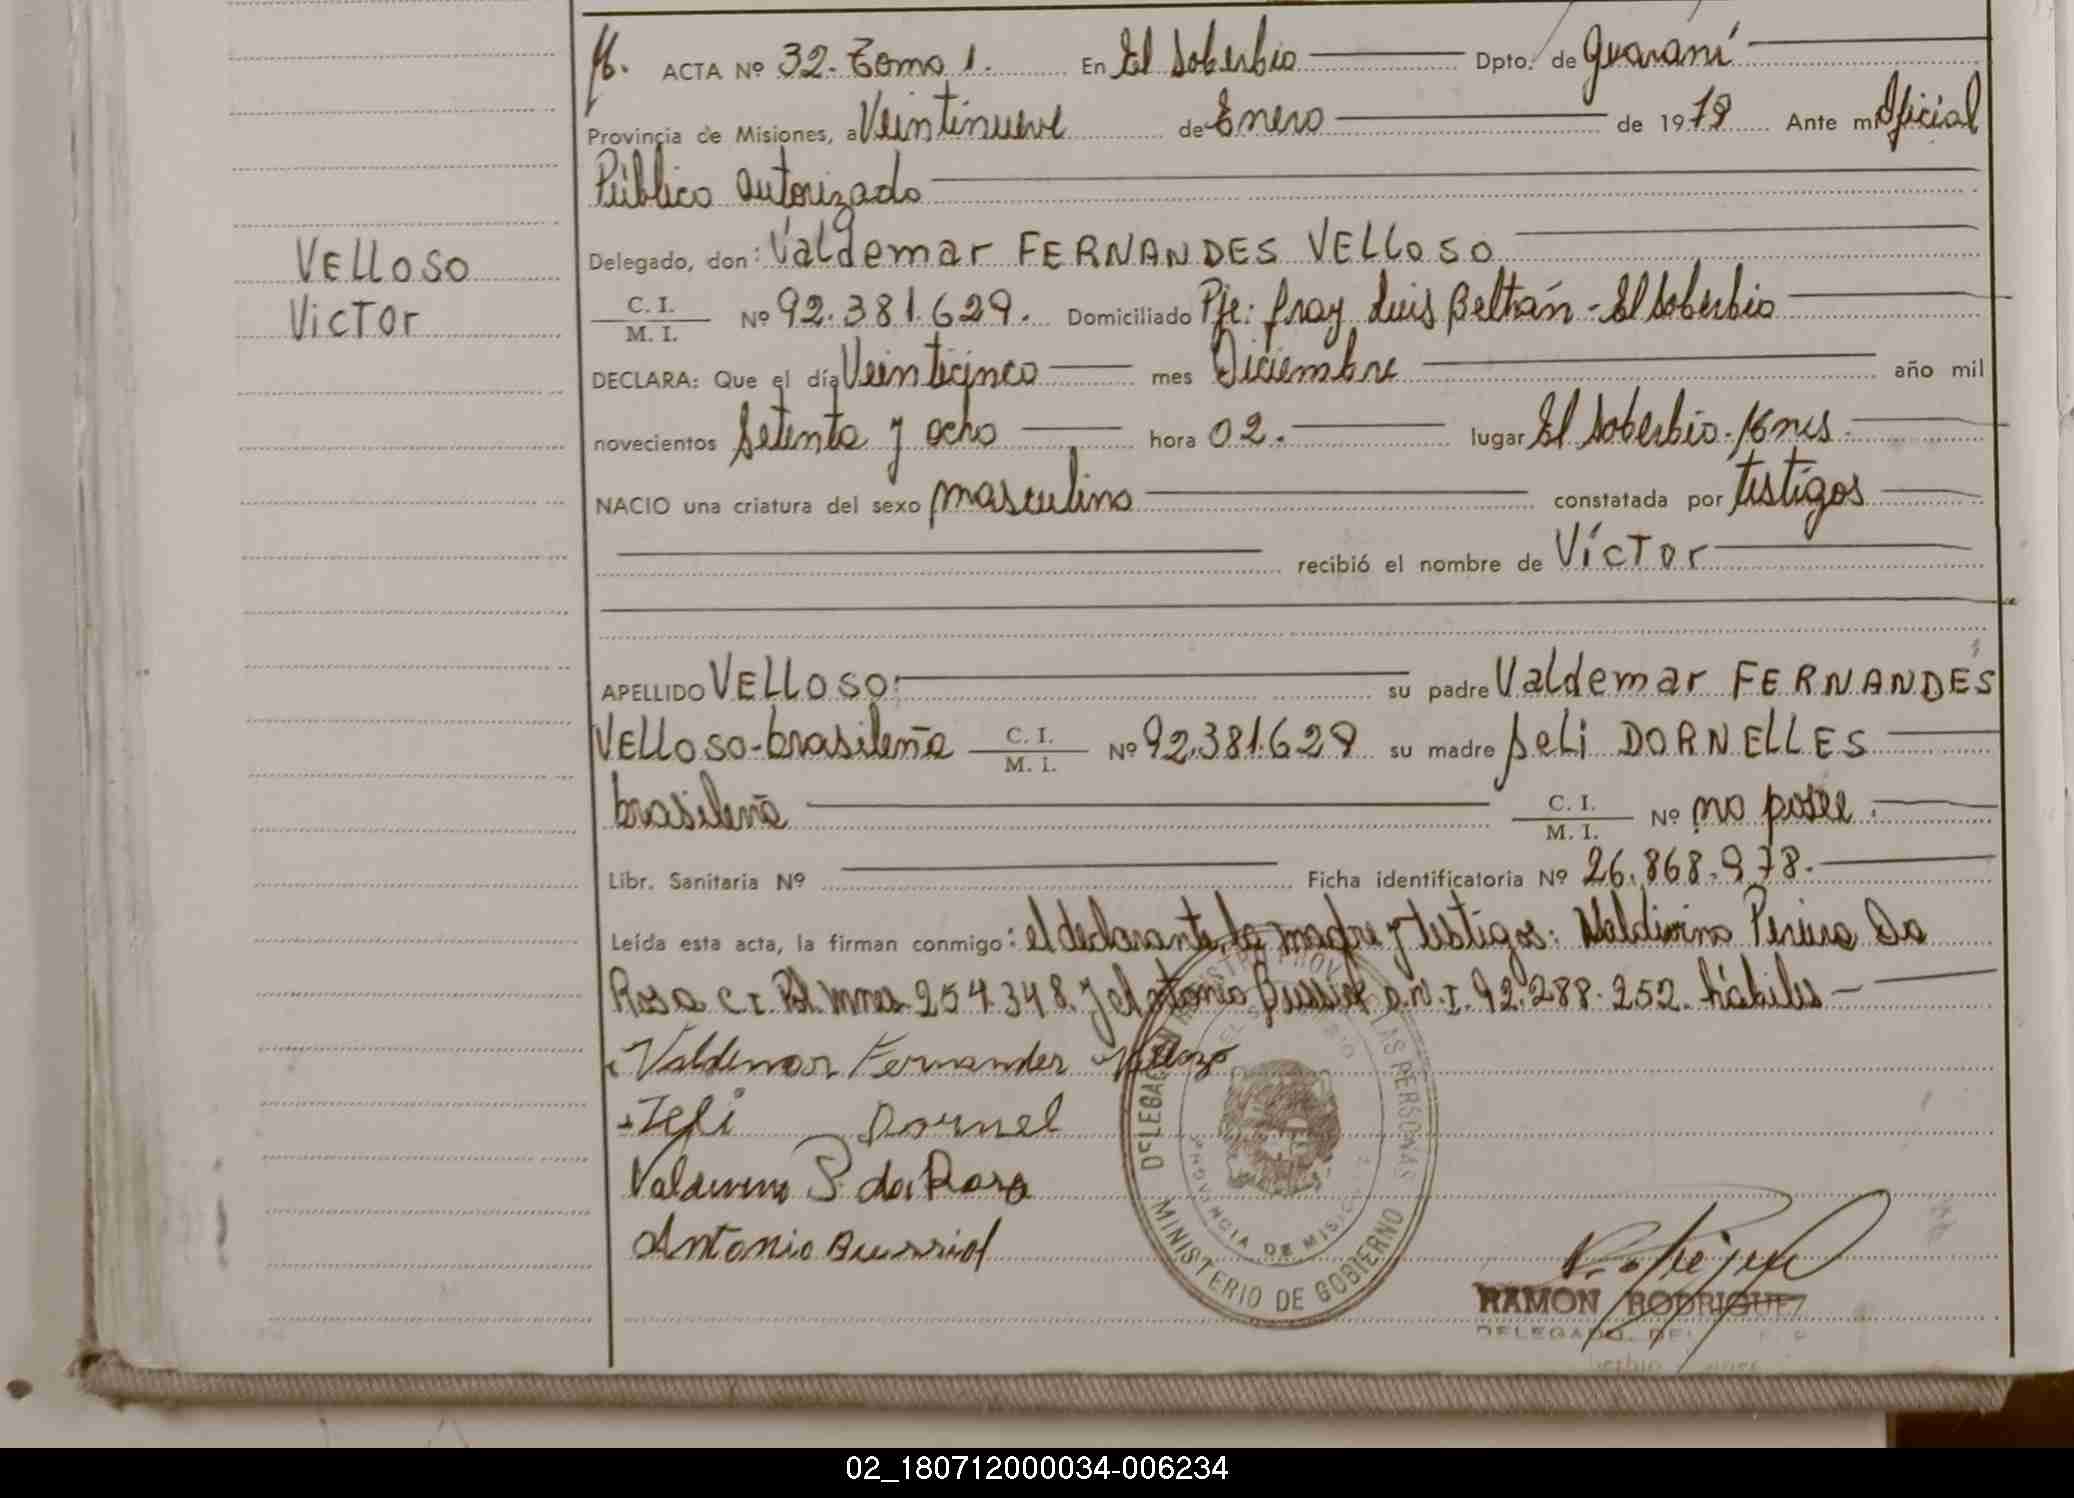 VELLOSO
VICTOr
ACTA Nº 32. Tomo 1. En El Soberbio Dpto. de Guaraní
Provincia de Misiones, a Veintinueve de Enero de 1979 Ante mi Oficial
Público autorizado
Delegado, don: Valdemar FERNANDES VELLOSO
C. I.
M. I.
Nº 92.381.629. Domiciliado Pje: fray Luis Beltrán - El Soberbio
DECLARA: Que el día Veinticinco mes Diciembre año mil
novecientos Setenta y ocho hora 02. lugar El Soberbio.
NACIO una criatura del sexo masculino constatada por testigos
recibió el nombre de VíCTOr
APELLIDO VELLOSO su padre Valdemar FERNANDES
VELLOSO-brasileña C. I. M. I. Nº 92.381.629 su madre seli DORNELLES
brasileña C. I. M. I. Nº no posee.
Libr. Sanitaria Nº Ficha identificatoria Nº 26.868.978.
Leída esta acta, la firman conmigo: el declarante, la madre y testigos: Valdivina Pereira Da
Rosa C.I. Pol. Mnes. 254.348. y el Antonio D.N.I. 92.288.252. hábiles
Valdemar Fernandes
Dornel
P. da Rosa
Antonio
DELEGACION REGISTRO PROV. LAS PERSONAS
PROVINCIA DE MISIONES
MINISTERIO DE GOBIERNO
RAMON RODRIGUEZ
DELEGADO
02_180712000034-006234